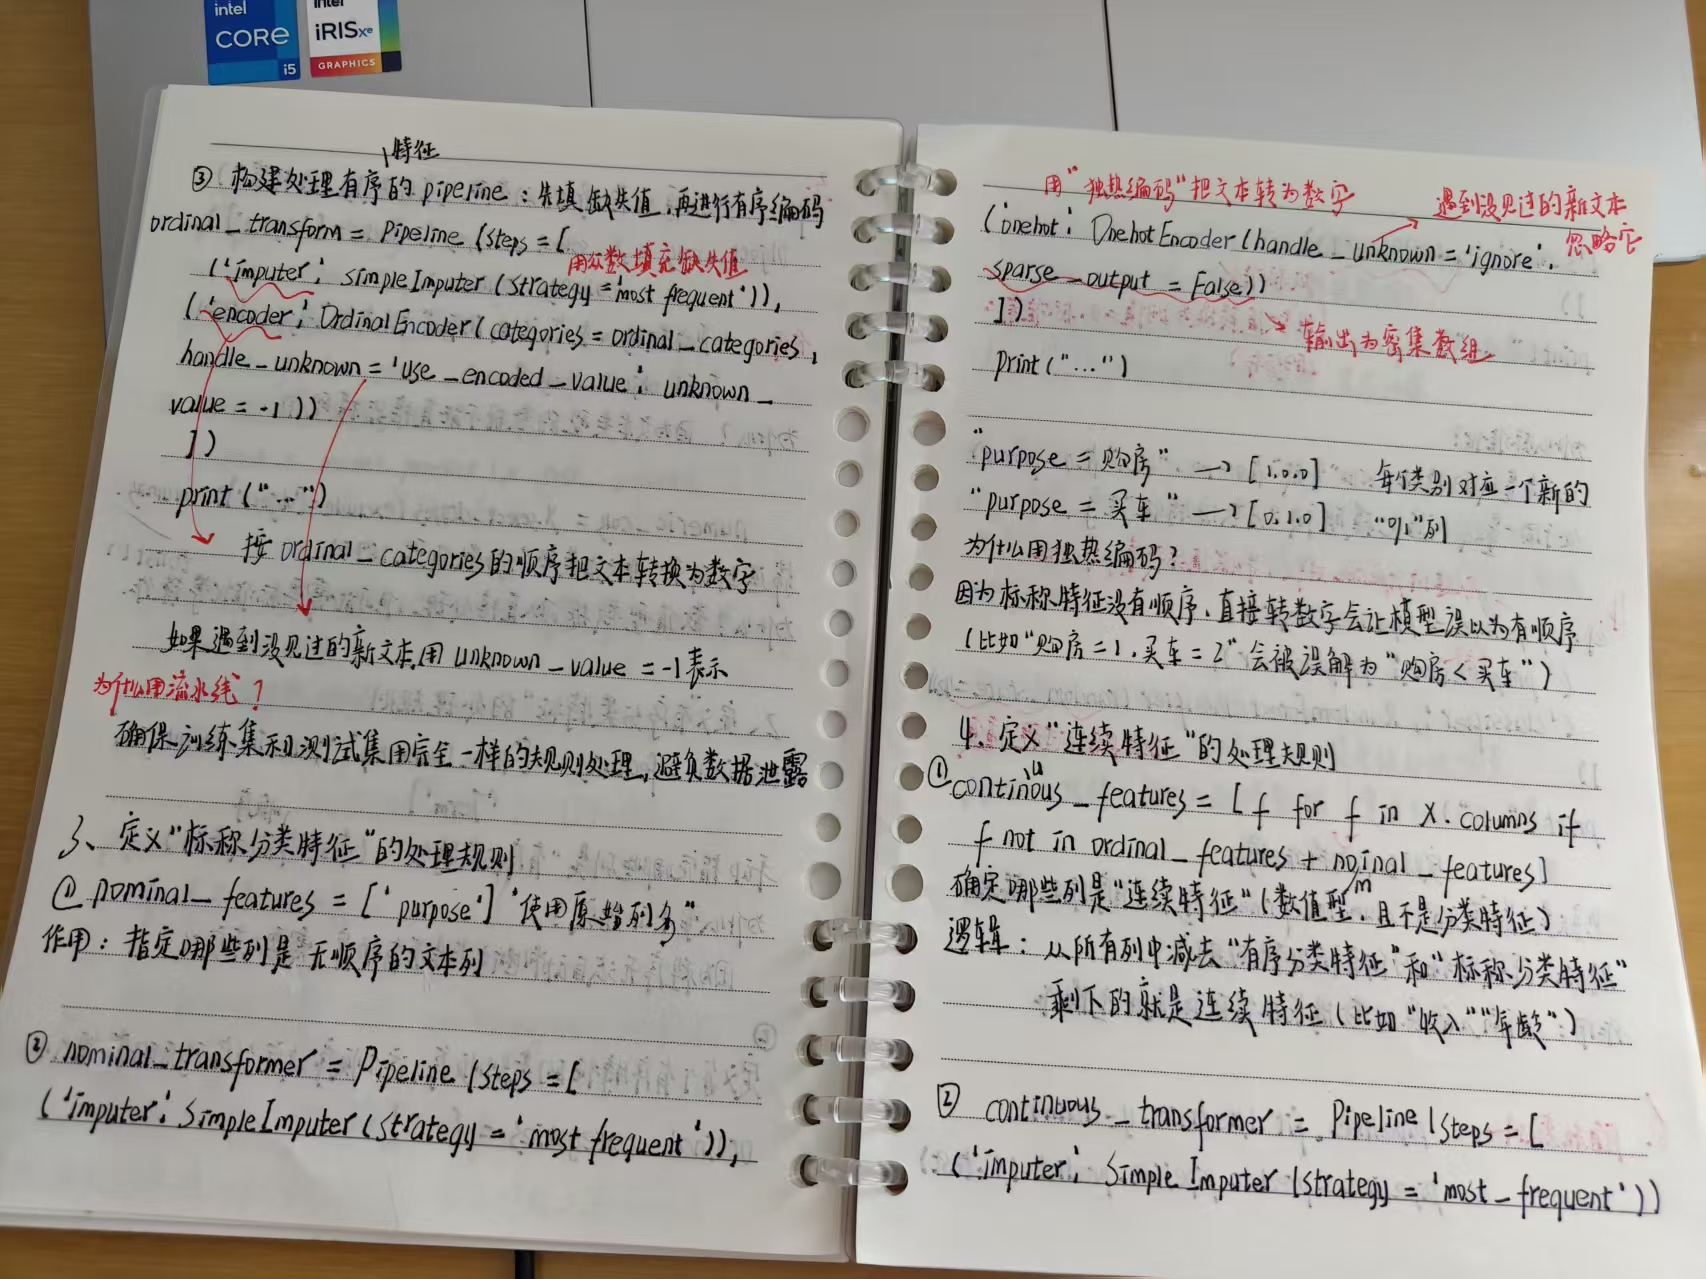 intel
CORE
i5
intel
iRIS Xe
GRAPHICS
特征
③ 构建处理有序的pipeline：先填缺失值，再进行有序编码
ordinal_transform = Pipeline (steps = [
用众数填充缺失值
('imputer', simpleImputer (strategy = 'most frequent')),
('encoder', OrdinalEncoder (categories = ordinal_categories,
handle_unknown = 'use_encoded_value', unknown_
value = -1))
])
print ("...")
按 ordinal_categories的顺序把文本转换为数字
如果遇到没见过的新文本,用 unknown_value = -1表示
为什么用流水线？
确保训练集和测试集用完全一样的规则处理，避免数据泄露
3、定义"标称分类特征"的处理规则
① nominal_features = ['purpose'] "使用原始列名"
作用：指定哪些列是无顺序的文本列
② nominal_transformer = Pipeline (steps = [
('imputer', SimpleImputer (strategy = 'most frequent')),
用"独热编码"把文本转为数字
遇到没见过的新文本
忽略它
('onehot', OnehotEncoder (handle_unknown = 'ignore',
sparse_output = False))
])
输出为密集数组
print ("...")
"purpose = 购房" → [1.0.0] 每个类别对应一个新的
"purpose = 买车" → [0.1.0] "0/1"列
为什么用独热编码？
因为标称特征没有顺序，直接转数字会让模型误以为有顺序
(比如"购房=1，买车=2"会被误解为"购房<买车")
4、定义"连续特征"的处理规则
u
① continous_features = [f for f in X.columns if
f not in ordinal_features + noinal_features]
m
确定哪些列是"连续特征"(数值型，且不是分类特征)
逻辑：从所有列中减去"有序分类特征"和"标称分类特征"
剩下的就是连续特征(比如"收入""年龄")
② continuous_transformer = Pipeline (steps = [
('imputer', Simple Imputer (strategy = 'most_frequent'))